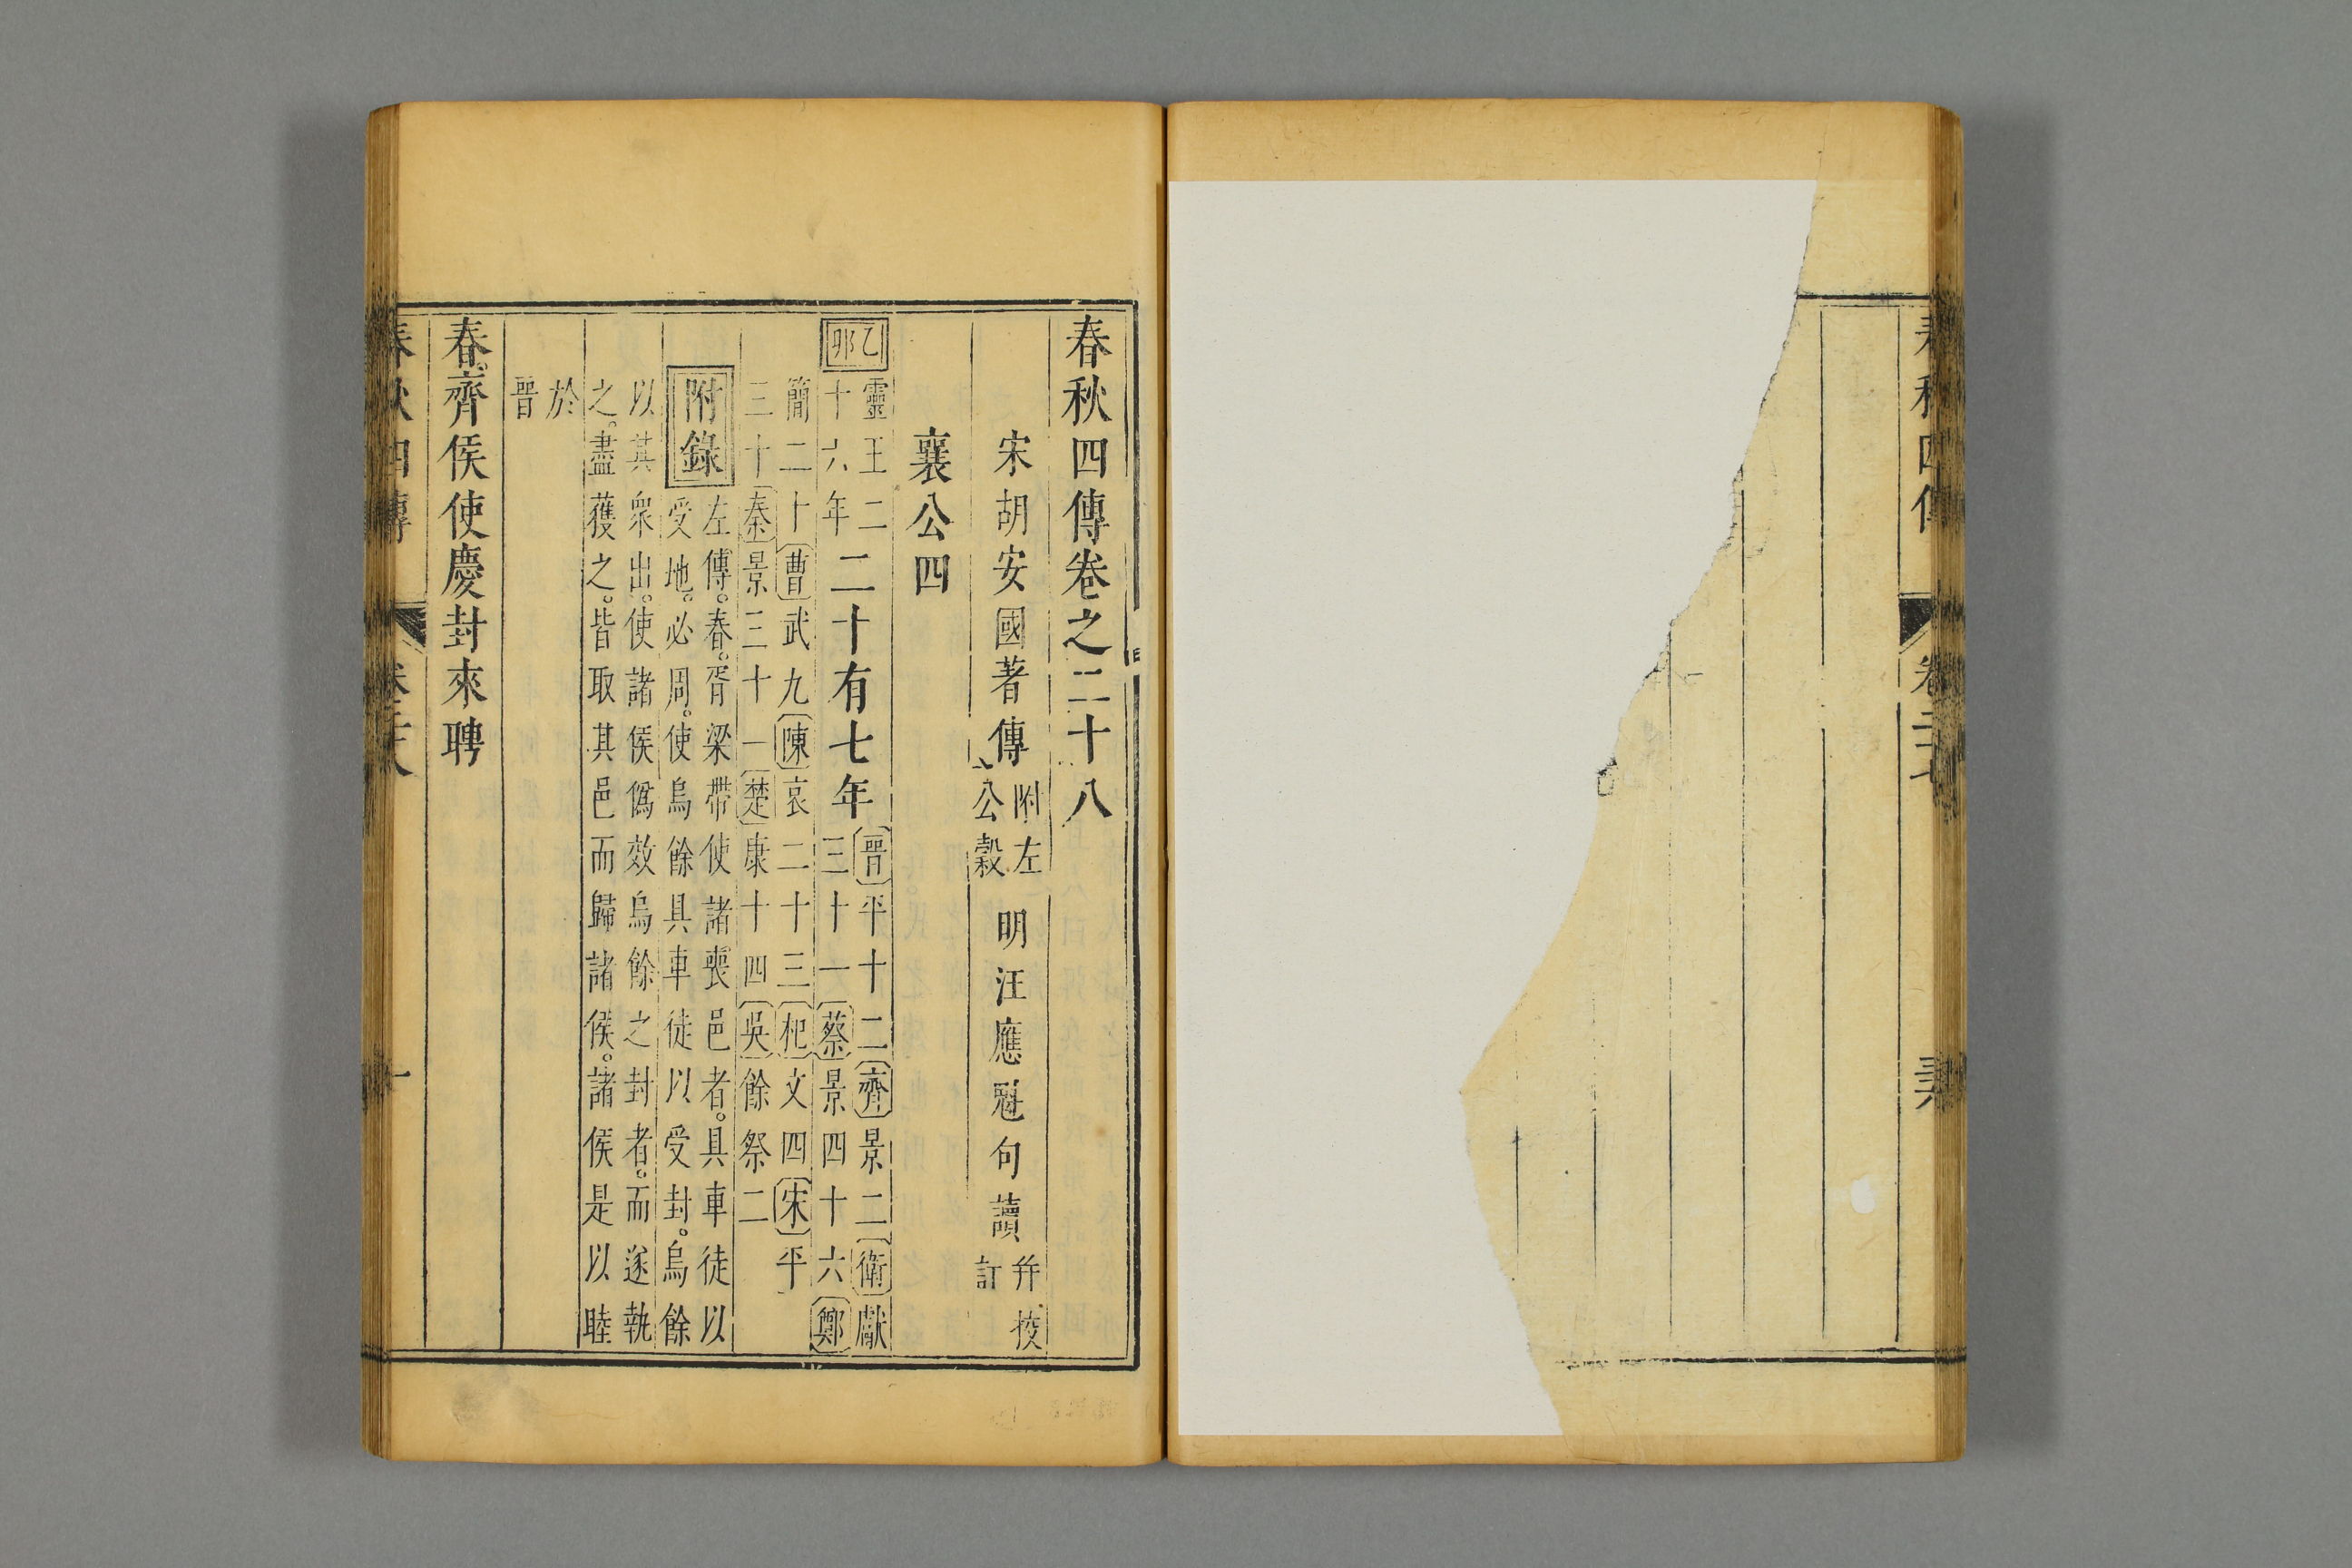 春秋四傳卷之二十八
宋胡安國著傳 附左公穀 明汪應魁句讀 并挍訂
襄公四
乙卯 靈王二十六年 二十有七年 晉平十二齊景二衛獻三十一蔡景四十六鄭
簡二十曹武九陳哀二十三杞文四宋平三十秦景三十一楚康十四吳餘祭二
附錄 左傳。春。胥梁帶使諸喪邑者。具車徒以受地。必周。使烏餘具車徒以受封。烏餘
以其衆出。使諸侯僞效烏餘之封者。而遂執之。盡獲之。皆取其邑而歸諸侯。諸侯是以睦
於晉
春。齊侯使慶封來聘
春秋四傳 卷二十八 一